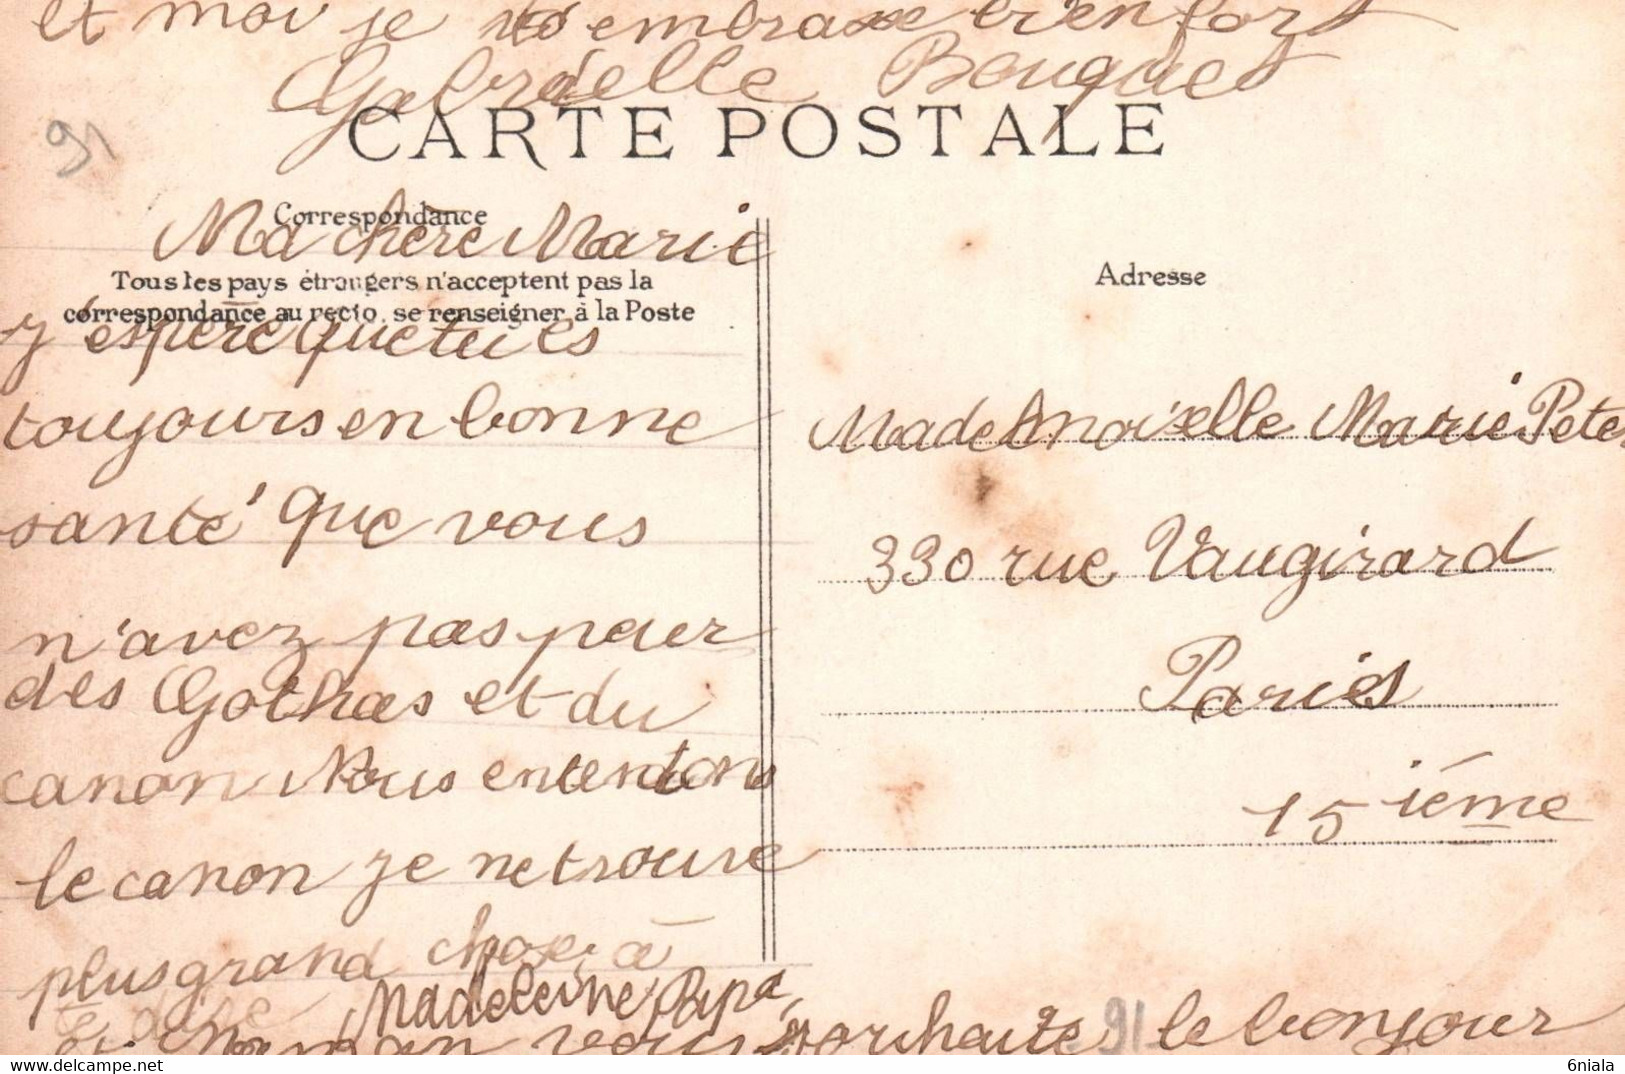 et moi je t'embrasse bien fort
Gabrielle Bouquet
91
CARTE POSTALE
Correspondance
Ma chère Marie
Tous les pays étrangers n'acceptent pas la
correspondance au recto, se renseigner à la Poste
J'espère que tu es
toujours en bonne
santé que vous
n'avez pas peur
des Gothas et du
canon Nous entendons
le canon je ne trouve
plus grand chose à
te dire
Madeleine Papa
et Maman vous souhaite le bonjour
91
Adresse
Mademoiselle Marie Pete
330 rue Vaugirard
Paris
15 ième
delcampe.net
6niala